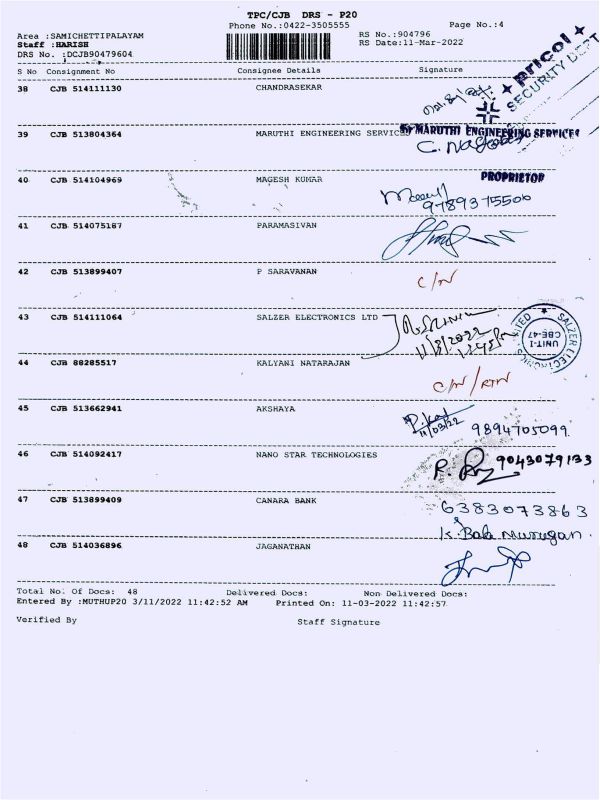 TPC/CJB DRS - P20
Phone No.:0422-3505555
Page No.:4
Area :SAMICHETTIPALAYAM
RS No.:904796
Staff :HARISH
RS Date:11-Mar-2022
DRS No. :DCJB90479604
S No Consignment No Consignee Details Signature
38 CJB 514111130 CHANDRASEKAR
pricol
SECURITY DEPT
39 CJB 513804364 MARUTHI ENGINEERING SERVICES
MARUTHI ENGINEERING SERVICES
PROPRIETOR
40 CJB 514104969 MAGESH KUMAR
9789375506
41 CJB 514075187 PARAMASIVAN
42 CJB 513899407 P SARAVANAN
C/N
43 CJB 514111064 SALZER ELECTRONICS LTD
11/3/2022
SALZER ELECTRONICS LIMITED
UNIT-I
CBE-47
44 CJB 88285517 KALYANI NATARAJAN
C/N/RTN
45 CJB 513662941 AKSHAYA
11/03/22
9894705099
46 CJB 514092417 NANO STAR TECHNOLOGIES
9043079133
47 CJB 513899409 CANARA BANK
6383073863
K. Bala Murugan.
48 CJB 514036896 JAGANATHAN
Total No. Of Docs: 48 Delivered Docs: Non Delivered Docs:
Entered By :MUTHUP20 3/11/2022 11:42:52 AM Printed On: 11-03-2022 11:42:57
Verified By Staff Signature